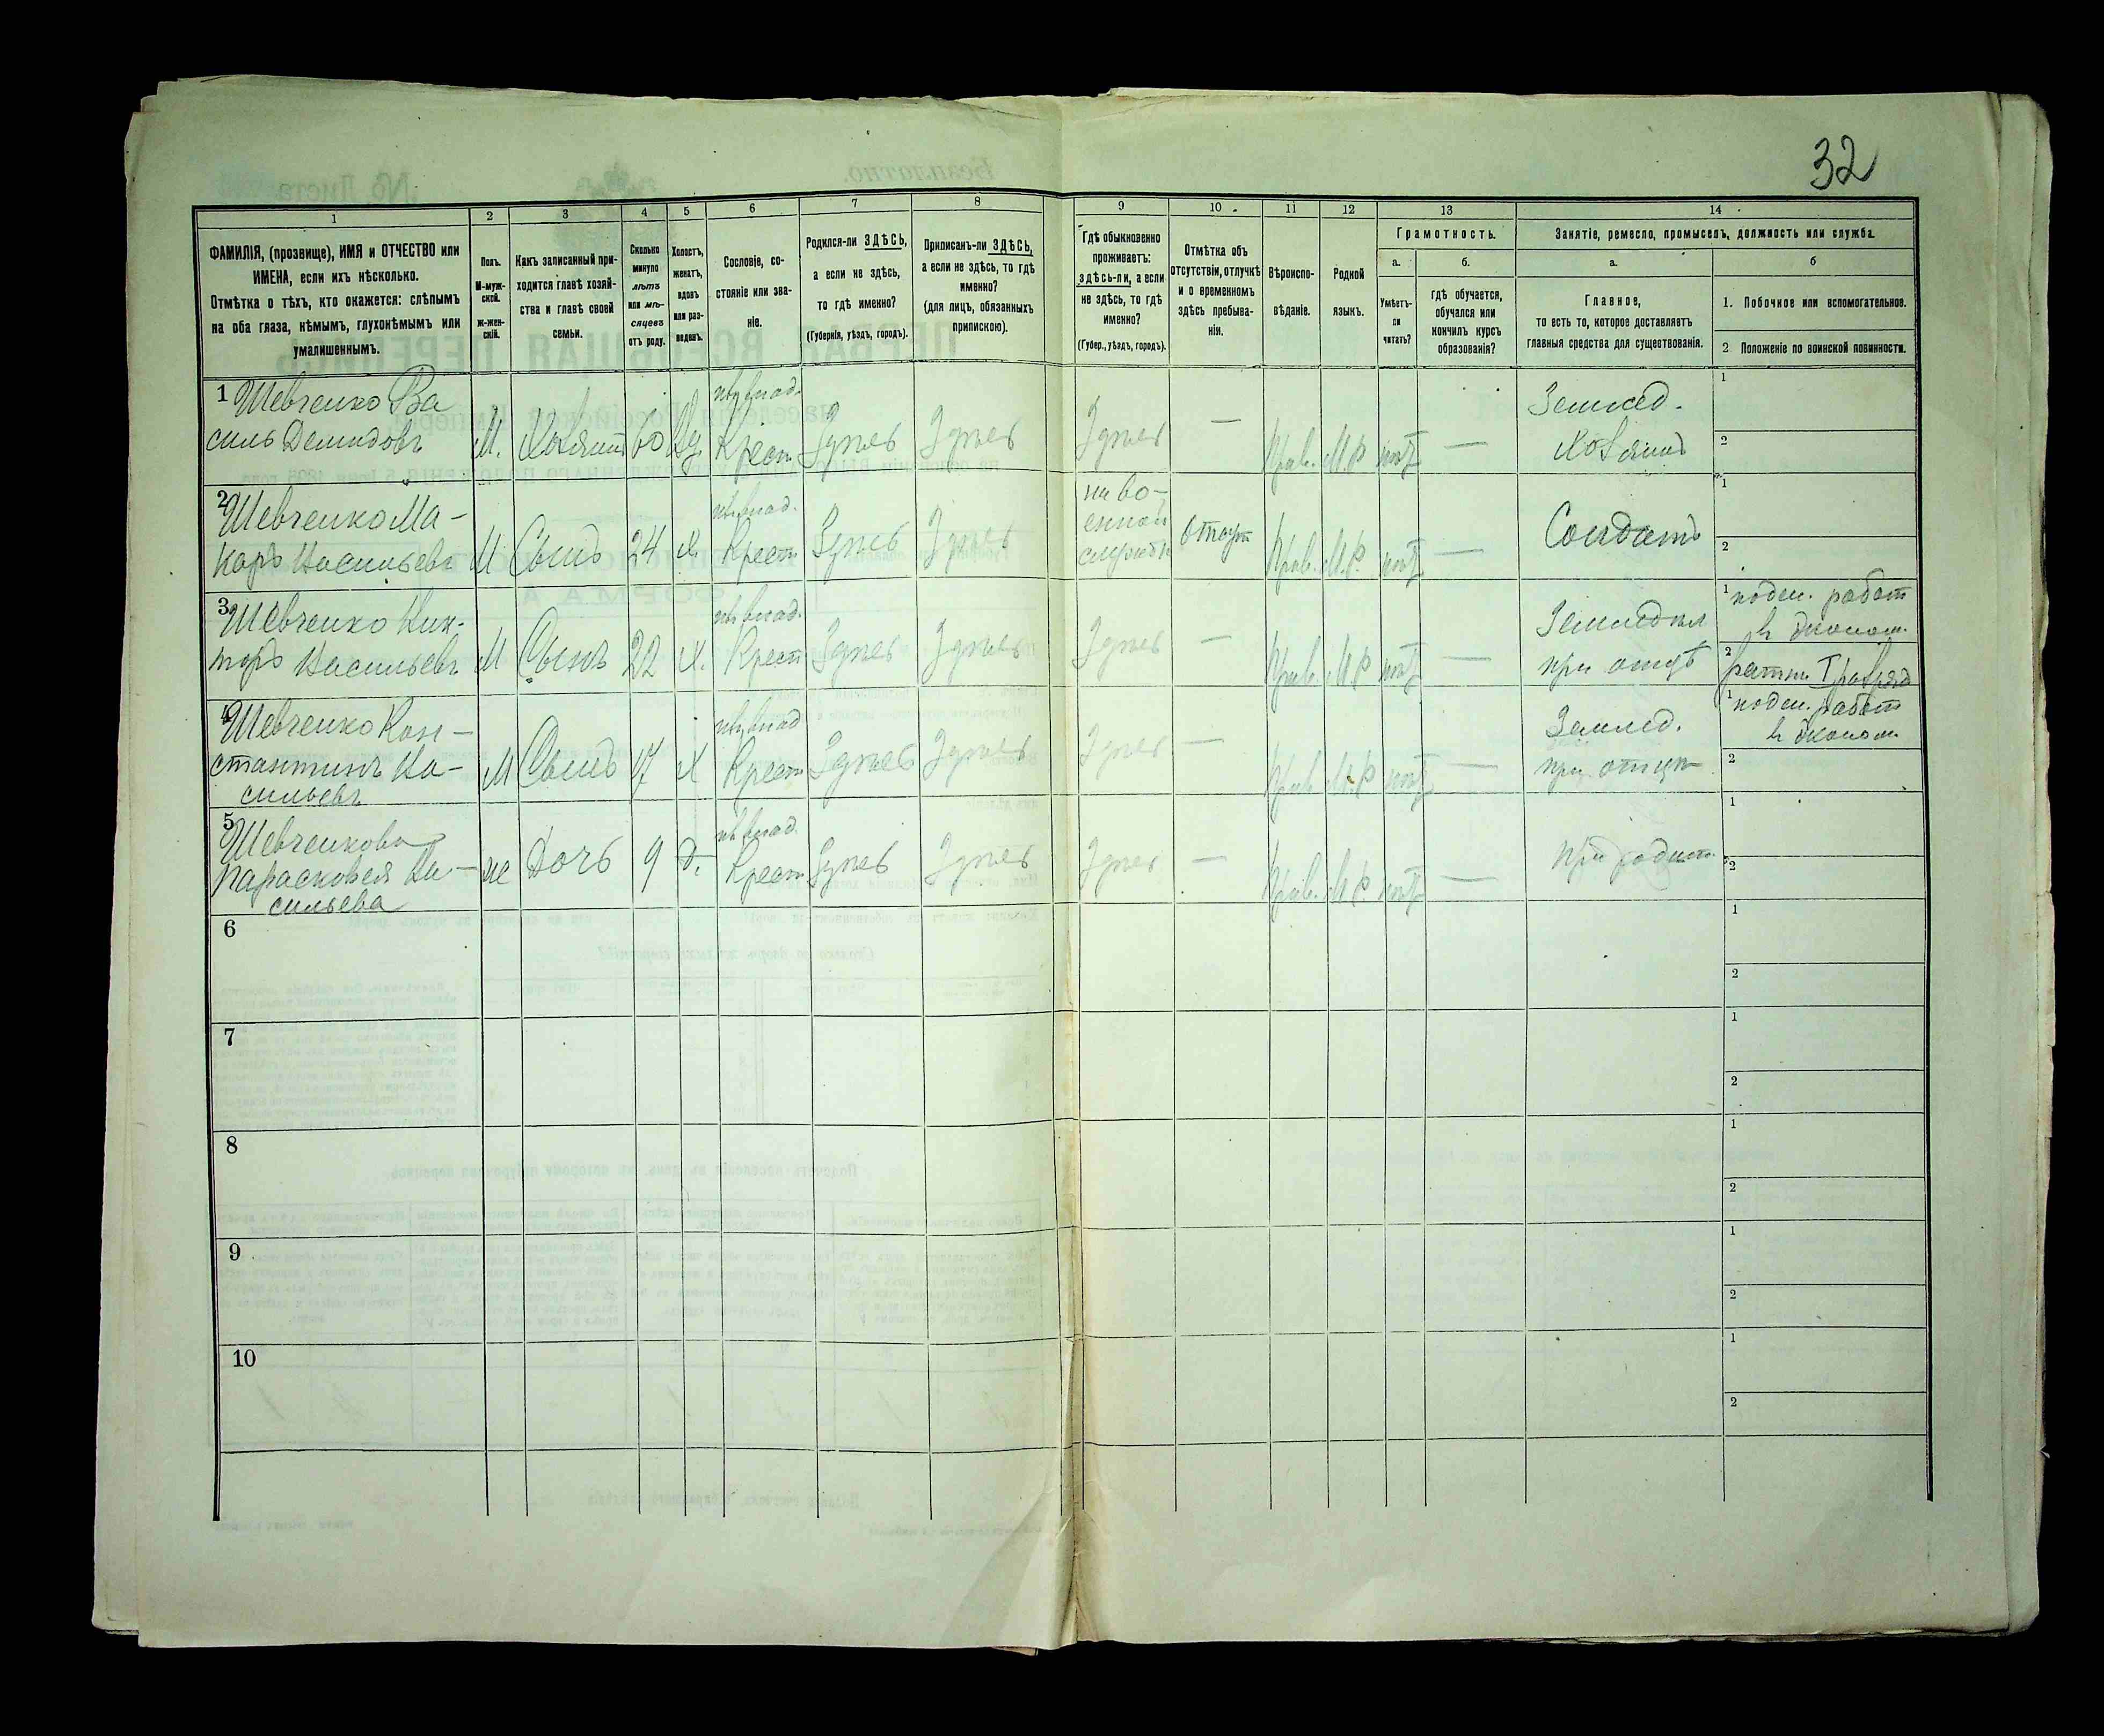 32
1
2
3
4
5
6
7
8
ФАМИЛІЯ, (прозвище), ИМЯ и ОТЧЕСТВО или
ИМЕНА, если ихъ нѣсколько.
Отмѣтка о тѣхъ, кто окажется: слѣпымъ
на оба глаза, нѣмымъ, глухонѣмымъ или
умалишеннымъ.
Полъ.
М-муж-
ской.
Ж-жен-
скій.
Какъ записанный при-
ходится главѣ хозяй-
ства и главѣ своей
семьи.
Сколько
минуло
лѣтъ
или мѣ-
сяцевъ
отъ роду.
Холостъ,
женатъ,
вдовъ
или раз-
веденъ.
Сословіе, со-
стояніе или зва-
ніе.
Родился-ли ЗДѢСЬ,
а если не здѣсь,
то гдѣ именно?
(Губернія, уѣздъ, городъ).
Приписанъ-ли ЗДѢСЬ,
а если не здѣсь, то гдѣ
именно?
(для лицъ, обязанныхъ
припискою).
9
10
11
12
13
14
Гдѣ обыкновенно
проживаетъ:
здѣсь-ли, а если
не здѣсь, то гдѣ
именно?
(Губер., уѣздъ, городъ).
Отмѣтка объ
отсутствіи, отлучкѣ
и о временномъ
здѣсь пребыва-
ніи.
Вѣроиспо-
вѣданіе.
Родной
языкъ.
Грамотность.
а.
б.
Умѣетъ-
ли
читать?
гдѣ обучается,
обучался или
кончилъ курсъ
образованія?
Занятіе, ремесло, промыселъ, должность или служба.
а.
б
Главное,
то есть то, которое доставляетъ
главныя средства для существованія.
1. Побочное или вспомогательное.
2 Положеніе по воинской повинности.
1 Шевченко Ва
силь Демидовъ
М. Хозяинъ 60 Вд. Крест Здѣсь Здѣсь Здѣсь — Прав. М.Р нѣтъ —
Землед.
Хозяинъ
1
2
2 Шевченко Ма-
каръ Васильевъ
М Сынъ 24 Х. Крест Здѣсь Здѣсь
на во-
енной
службѣ
Отсут Прав. М.Р. нѣтъ — Солдатъ
1
2
3 Шевченко Вик-
торъ Васильевъ
М Сынъ 22 Х. Крест Здѣсь Здѣсь Здѣсь — Прав. М.Р нѣтъ —
Земледѣл
при отцѣ
1 поден. работ
в эконом.
2 ратник I разряд
4 Шевченко Кон-
стантинъ Ва-
сильевъ
М Сынъ 17 Х Крест Здѣсь Здѣсь Здѣсь — Прав М.Р нѣтъ —
Землед.
при отцѣ
1 поден. работ
в эконом.
2
5 Шевченкова
Парасковея Ва-
сильева
ж Дочь 9 д. Крест Здѣсь Здѣсь Здѣсь — Прав. М.Р. нѣтъ —
При родит.
1
2
6
1
2
7
1
2
8
1
2
9
1
2
10
1
2